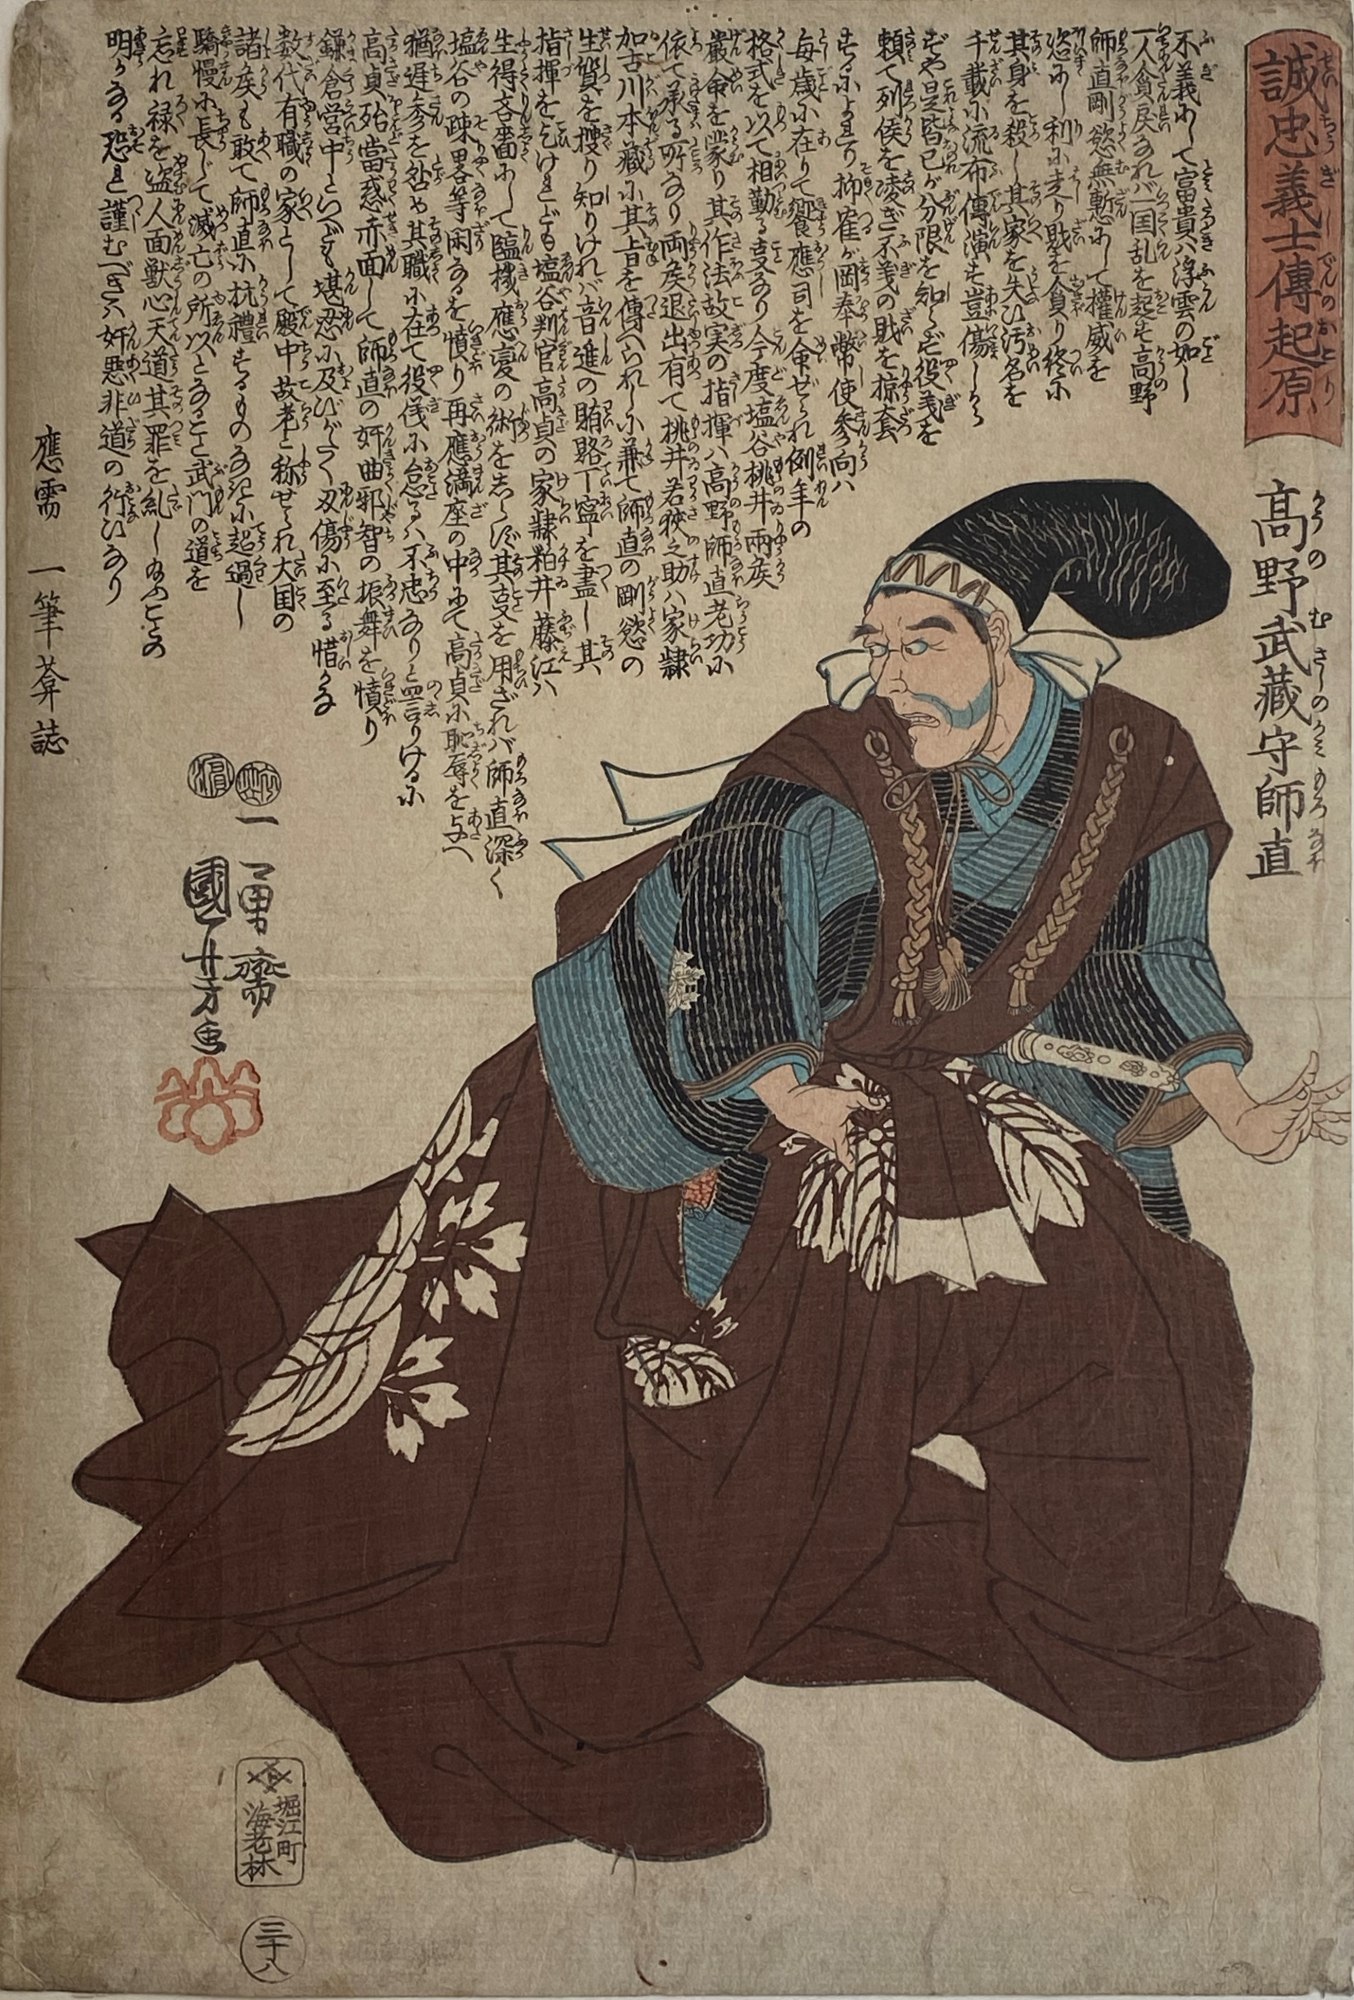 誠忠義士傳起原
高野武藏守師直
不義にして富貴ハ浮雲の如し
一人貪戻なれバ一国乱を起す高野
師直剛慾無慙にして權威を
恣にし利に走り財を貪り終に
其身を殺し其家を失ひ汚名を
千載に流布傳演す豈傷しから
ずや是皆己が分限を知らず役義を
頼て列侯を凌ぎ不義の財を掠奪
するによれり抑雀が岡奉幣使参向ハ
毎歳に在りて饗應司を命ぜられ例年の
格式を以て相勤る事なり今度塩谷桃井兩侯
嚴命を蒙り其作法故実の指揮ハ高野師直老功に
依て承る所なり両侯退出有て桃井若狹之助ハ家隷
加古川本藏に其旨を傳へられしに兼て師直の剛慾の
生質を捜り知りけれバ音進の賄賂丁寧を盡し其
指揮を乞けれども塩谷判官高貞の家隷粕井藤江ハ
生得吝嗇にして臨機應変の術をしらず其事を用ざれバ師直深く
塩谷の疎畧等閑なるを憤り再應満座の中にて高貞に恥辱を与へ
猶遅参を咎や其職に在て役儀に怠るハ不忠なりと罵りけるに
高貞殆當惑赤面して師直の奸曲邪智の振舞を憤り
鎌倉営中といへども堪忍に及びがたく刃傷に至る惜かな
数代有職の家として殿中故老と称せられ大国の
諸侯も敢て師直に抗禮するものなきに起過し
驕慢に長じて滅亡の所以となること武門の道を
忘れ禄を盗人面獣心天道其罪を糺し玉ふことの
明かなる恐れ謹むべきハ奸悪非道の行ひなり
應需 一筆菴誌
一勇齋
國芳画
堀江町
海老林
三十八